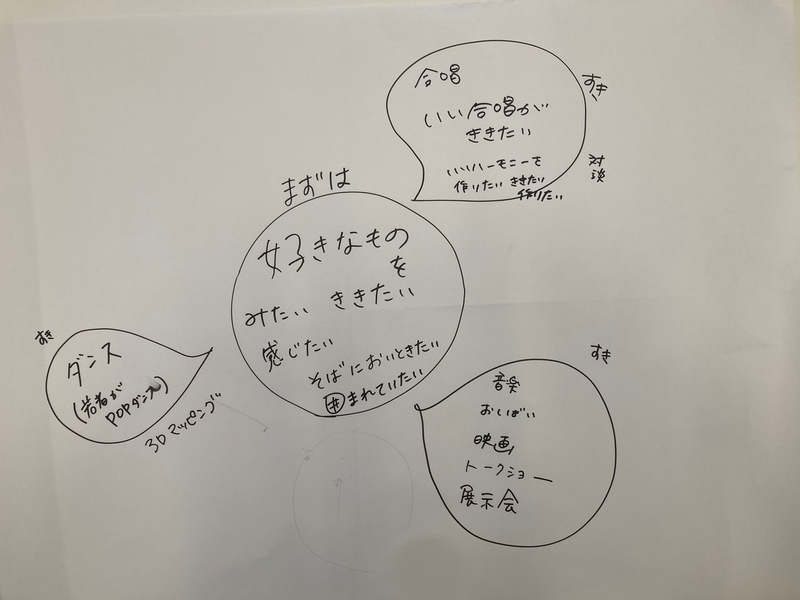 合唱
いい合唱が
ききたい
いいハーモニーを
作りたい ききたい
作りたい
すき
対談
まずは
好きなもの
を
みたい ききたい
感じたい
そばにおいときたい
囲まれていたい
すき
ダンス
(若者が
POPダンス)
3Dマッピング
すき
音楽
おしばい
映画
トークショー
展示会